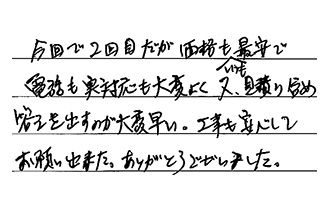 今回で2回目だが価格も最安で
電話も実対応も大変よく又、いつも見積り含め
答えを出すのが大変早い。工事も安心して
お願い出来た。ありがとうございました。